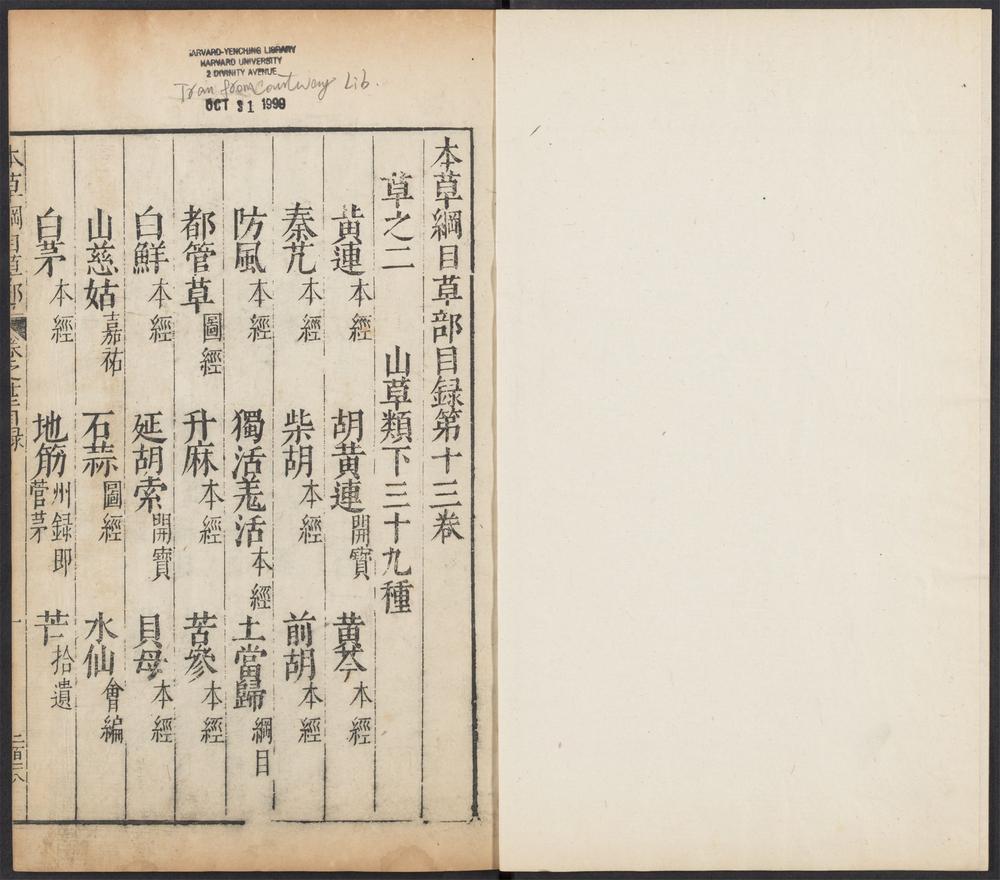 HARVARD-YENCHING LIBRARY
HARVARD UNIVERSITY
2 DIVINITY AVENUE
Tran from Countway Lib.
OCT 31 1990
本草綱目草部目録第十三卷
草之二 山草類下三十九種
黄連本經 胡黄連開寶 黄芩本經
秦艽本經 柴胡本經 前胡本經
防風本經 獨活羗活本經 土當歸綱目
都管草圖經 升麻本經 苦參本經
白鮮本經 延胡索開寶 貝母本經
山慈姑嘉祐 石蒜圖經 水仙會編
白茅本經 地筋州録即菅茅 芒拾遺
本草綱目草部 卷之十三目録 一 二百二八